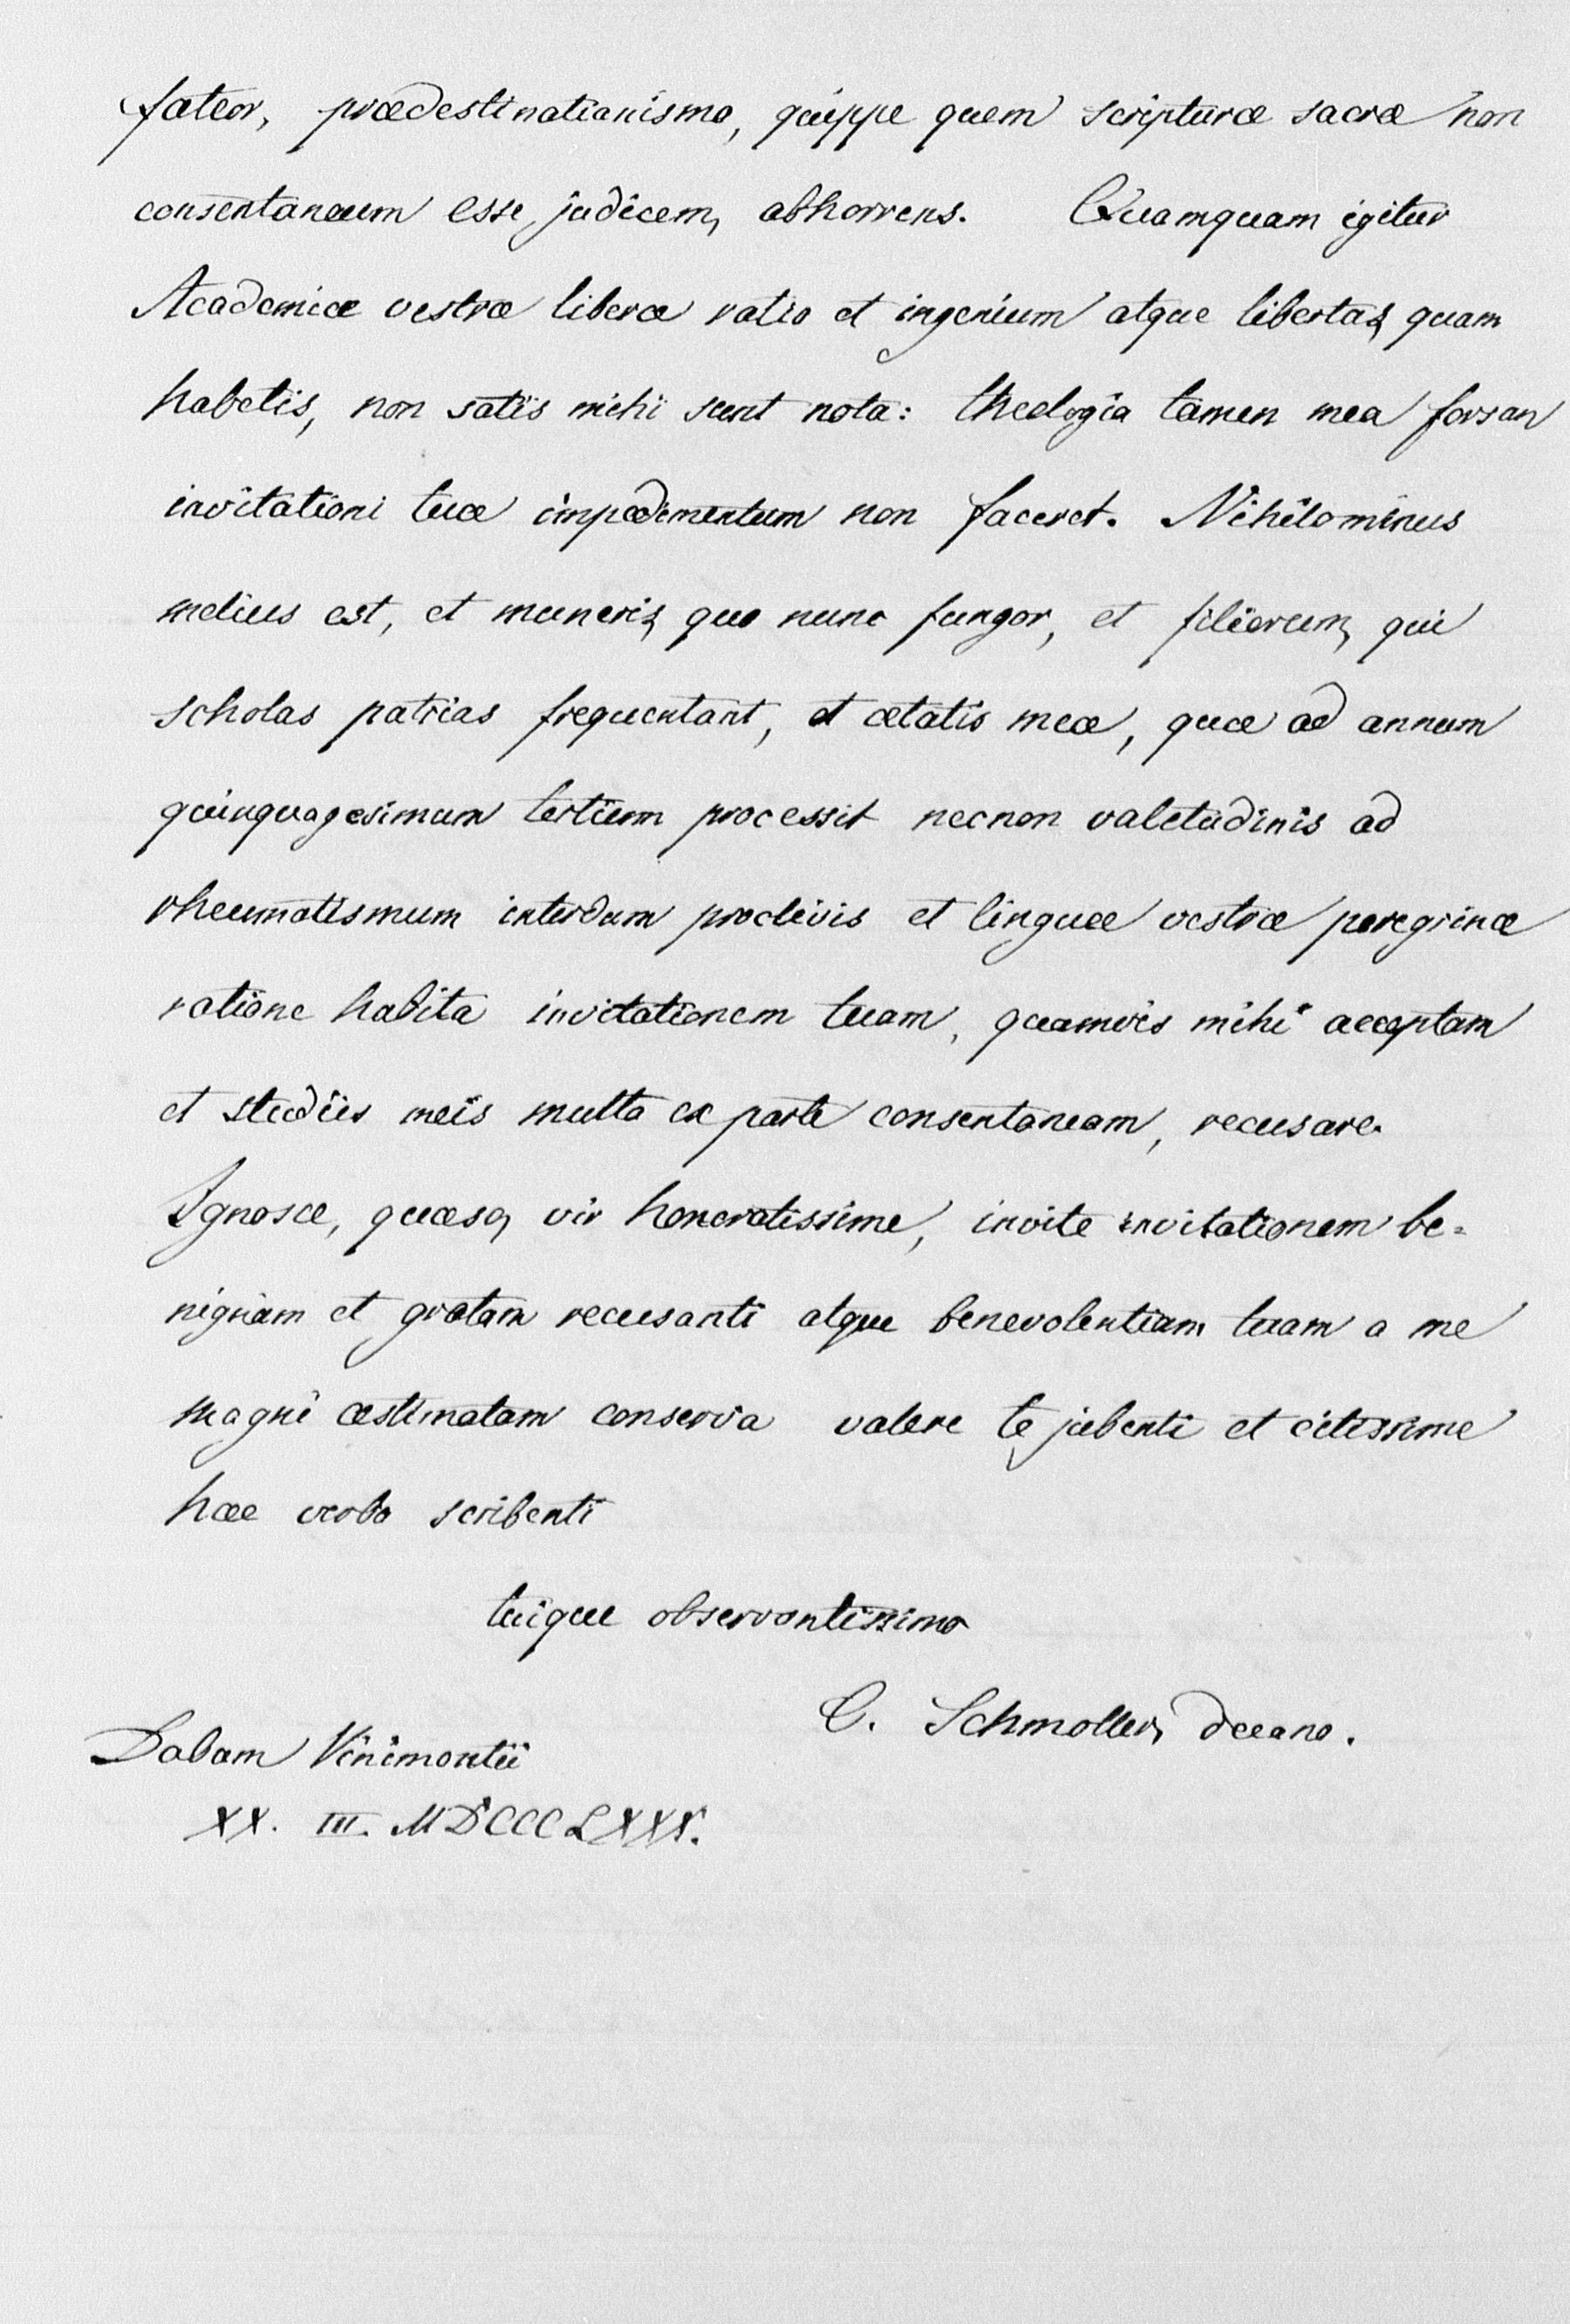 fateor, prædestinatianismo, quippe quem scripturæ sacræ non
consentaneum esse judicem, abhorrens. Quamquam igitur
Academiæ vestræ liberæ ratio et ingenium atque libertas, quam
habetis, non satis mihi sunt nota: theologia tamen mea forsan
invitationi tuæ impedimentum non faceret. Nihilominus
melius est, et muneris, quo nunc fungor, et filiorum, qui
scholas patrias frequentant, et ætatis meæ, quæ ad annum
quinquagesimum tertium processit necnon valetudinis ad
rheumatismum interdum proclivis et linguæ vestræ peregrinæ
ratione habita invitationem tuam, quamvis mihi acceptam
et studiis meis multa ex parte consentaneam, recusare.
Ignosce, quæso, vir honoratissime, invite invitationem be=
nignam et gratam recusanti atque benevolentiam tuam a me
magni æstimatam conserva valere te jubenti et citissime
hæc verba scribenti
tuique observantissimo
C. Schmoller, decano.
Dabam Vinimontii
XX. III. MDCCCLXXX.